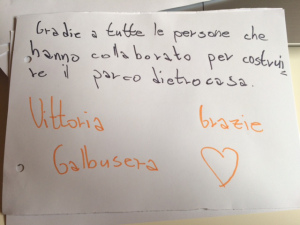 Gradie a tutte le persone che
hanno collaborato per costrui
re il parco dietrocasa.
Vittoria Grazie
Galbusera